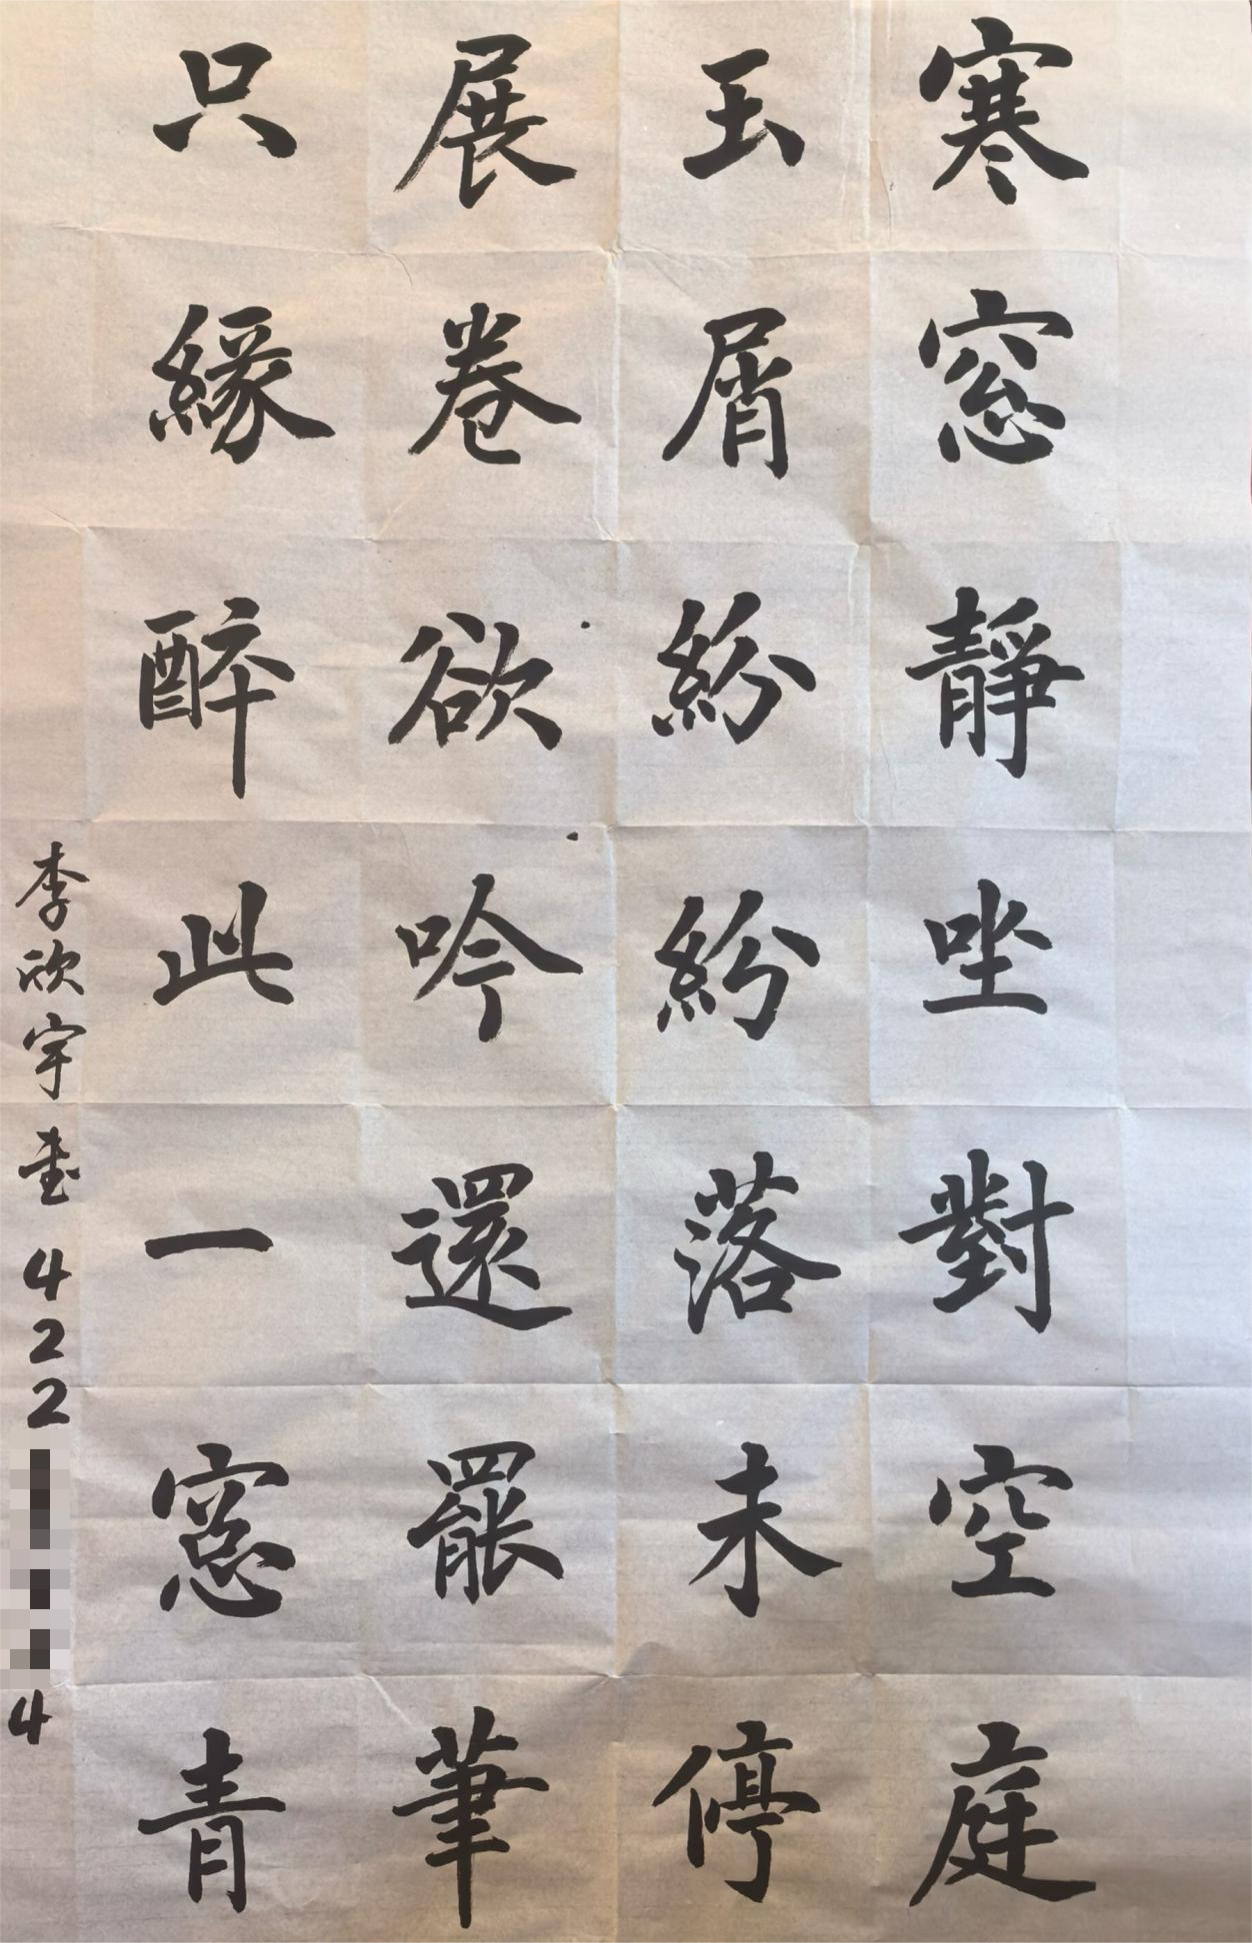 寒窓靜坐對空庭
玉屑紛紛落未停
展卷欲吟還罷筆
只緣醉此一窓青
李欣宇書 422
4